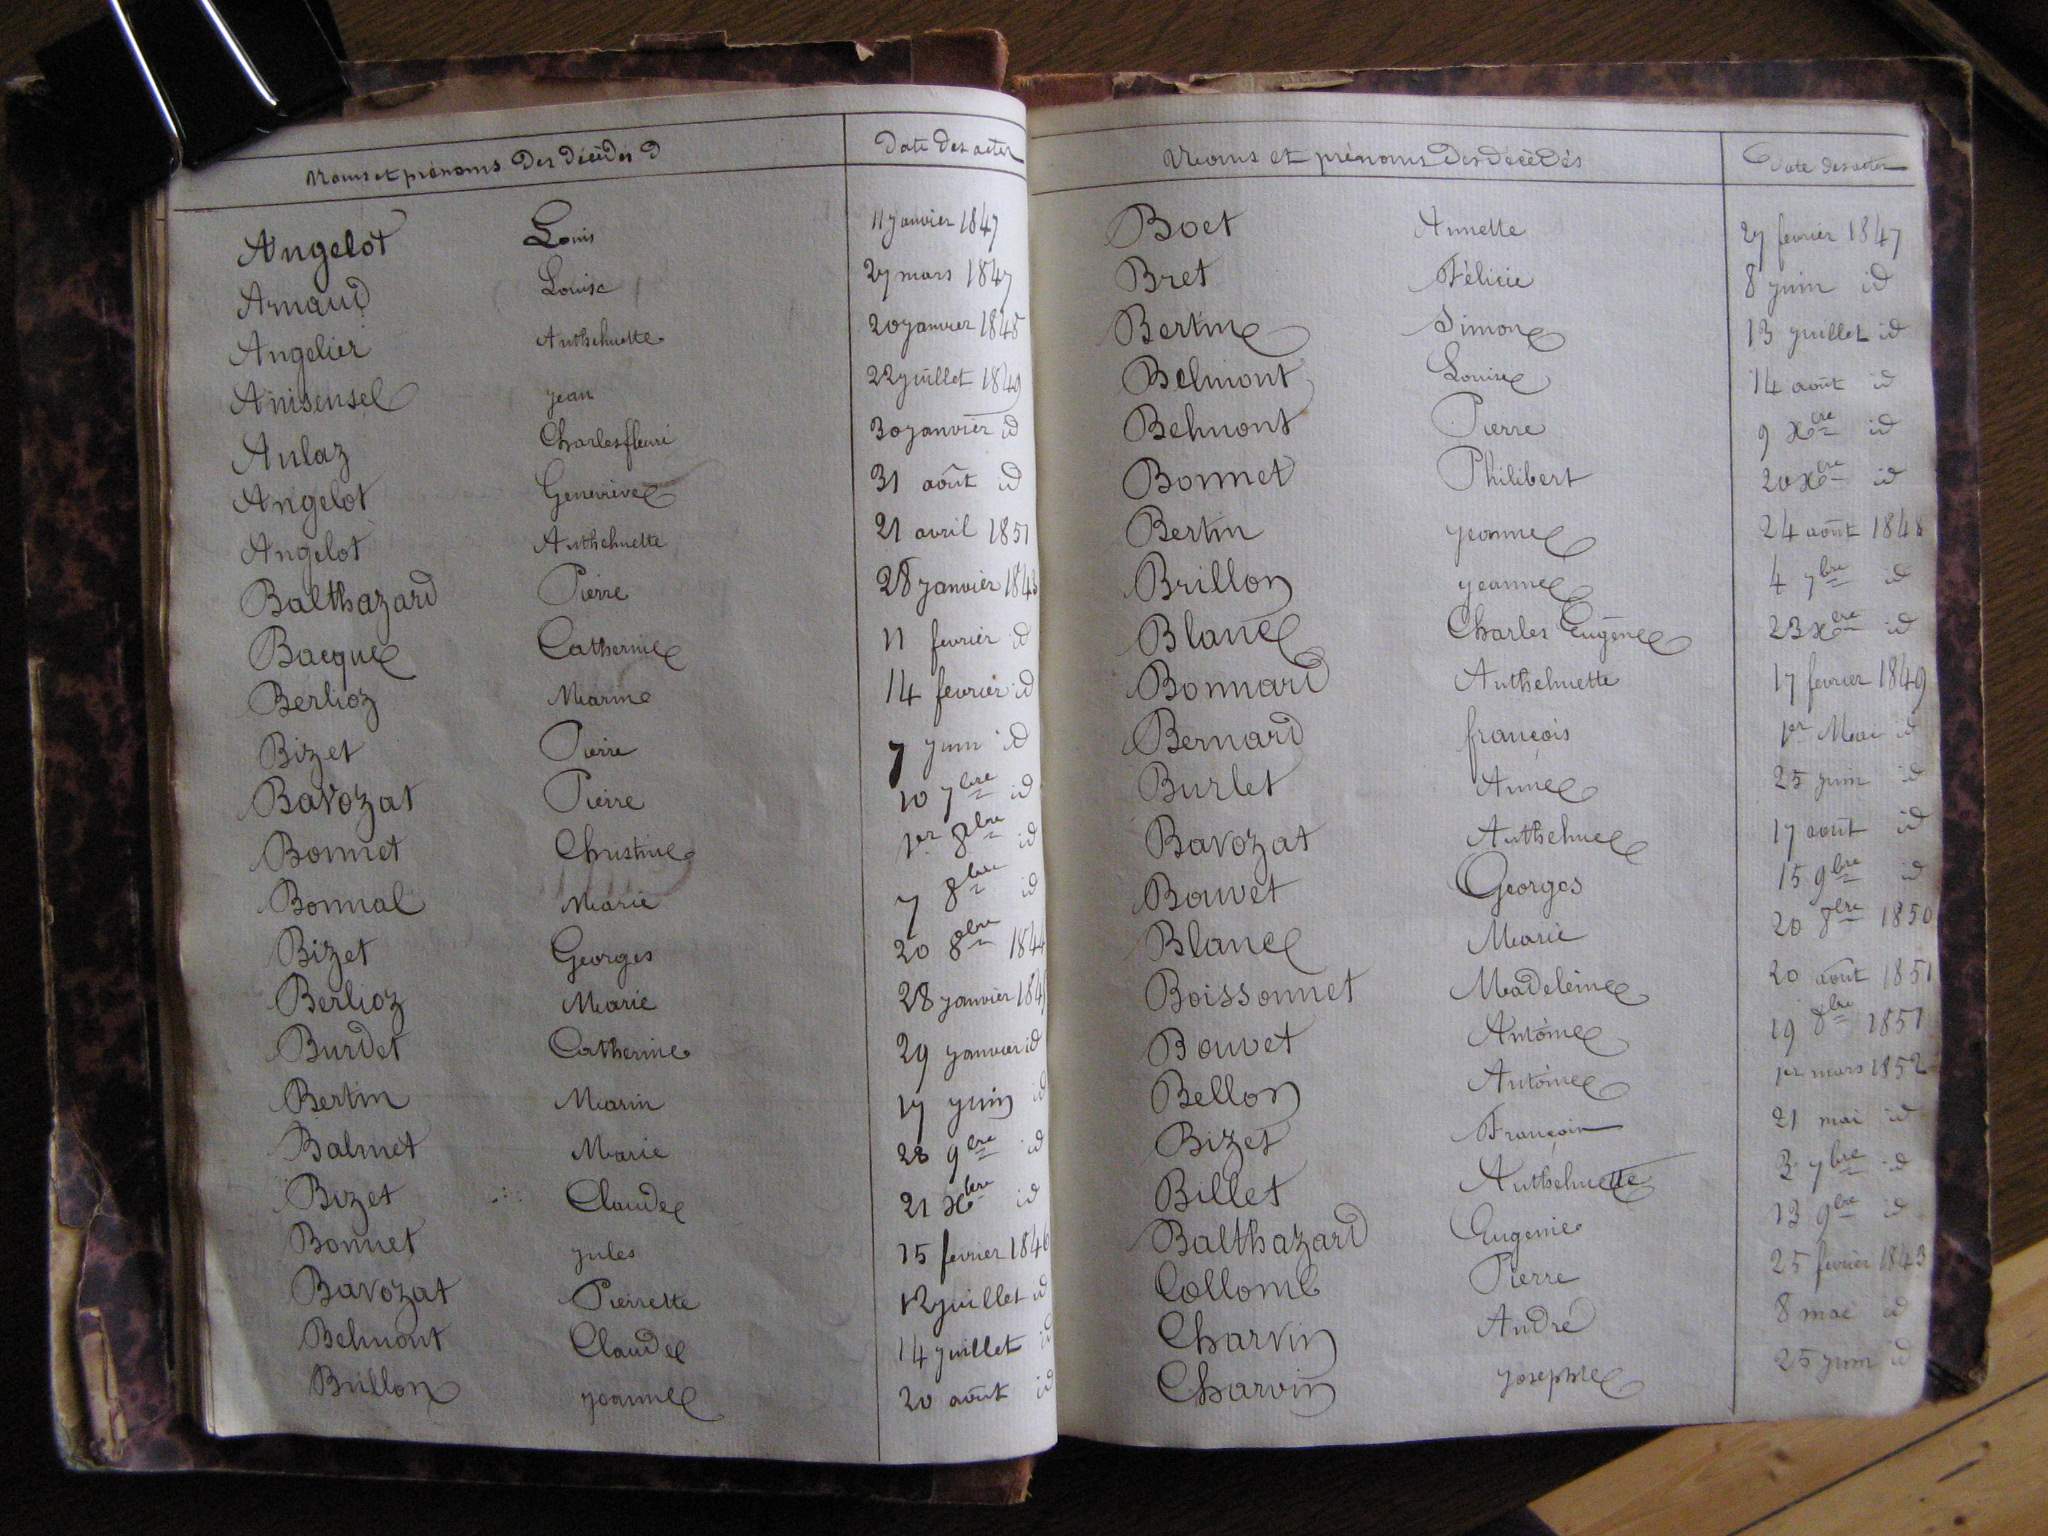 Noms et prénoms des décédés D Date des actes
Angelot Louis 11 janvier 1847
Arnaud Louise 27 mars 1847
Angelier Anthelmette 20 janvier 1848
Anisensel jean 22 juillet 1849
Aulaz Charles fleuri 30 janvier id
Angelot Geneviève 31 août id
Angelot Anthelmette 21 avril 1851
Balthazard Pierre 28 janvier 1843
Bacque Catherine 11 fevrier id
Berlioz Marine 14 fevrier id
Bizet Pierre 7 juin id
Bavozat Pierre 10 7bre id
Bonnet Christine 1er 8bre id
Bonnal Marie 7 8bre id
Bizet Georges 20 8bre 1844
Berlioz Marie 28 janvier
Burdet Catherine 29 janvier id
Bertin Marin 17 juin id
Balmet Marie 28 9bre id
Bizet Claude 21 xbre id
Bonnet jules 15 fevrier 1846
Bavozat Pierrette 12 juillet id
Belmont Claude 14 juillet id
Brillon jeanne 20 août id
Noms et prénoms des décédés Date des actes
Boet Annette 27 fevrier 1847
Bret Félicie 8 juin id
Bertin Simon 13 juillet id
Belmont Louise 14 août id
Belmont Pierre 9 xbre id
Bonnet Philibert 20 xbre id
Bertin jeanne 24 août 1848
Brillon jeanne 4 7bre id
Blanc Charles Eugène 23 xbre id
Bonnard Anthelmette 17 fevrier 1849
Bernard françois 1er Mai id
Burlet Anne 25 juin id
Bavozat Anthelme 17 août id
Bouvet Georges 15 9bre id
Blanc Marie 20 8bre 1850
Boissonnet Madeleine 20 août 1851
Bouvet Antoine 19 8bre 1851
Bellon Antoine 1er mars 1852
Bizet François 21 mai id
Billet Anthelmette 3 7bre id
Balthazard Eugenie 13 9bre id
Collomb Pierre 25 fevrier 1843
Charvin André 8 mai id
Charvin josephte 25 juin id